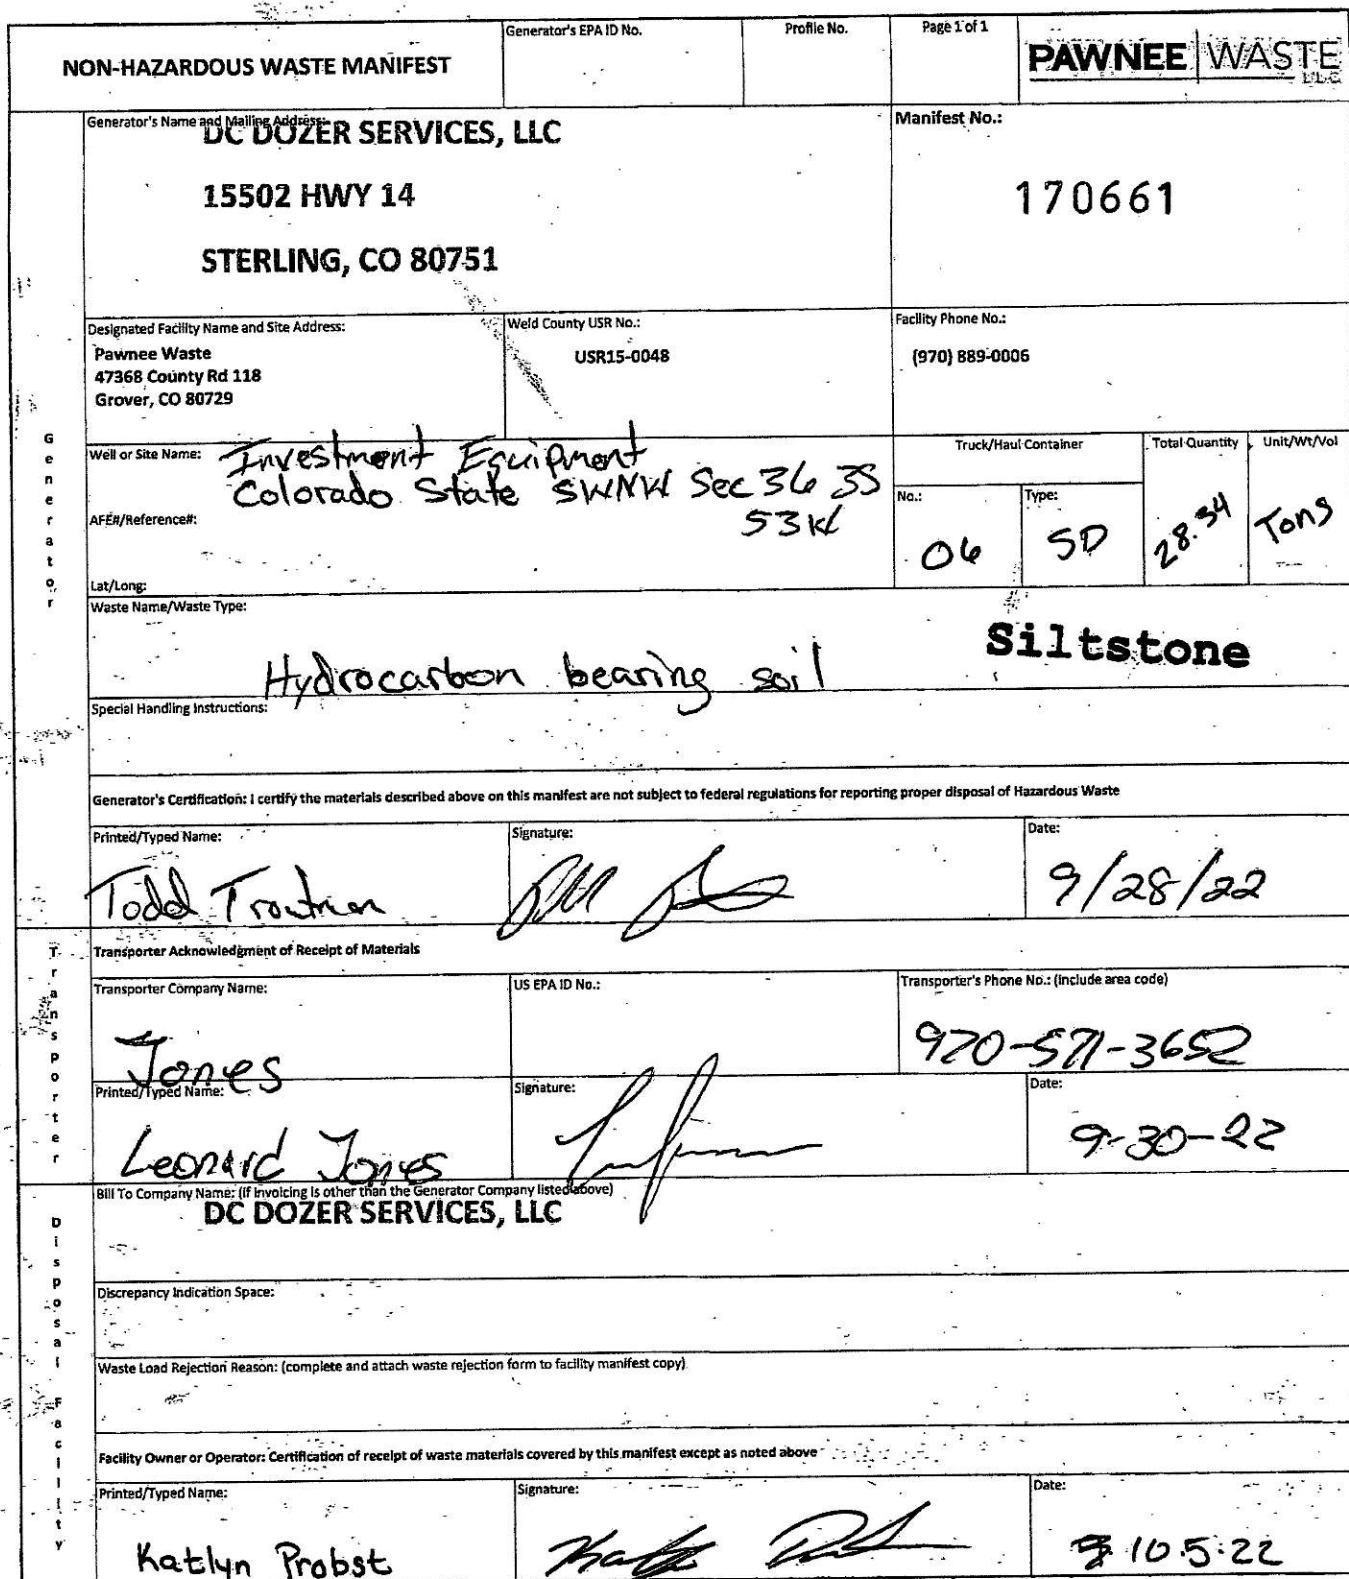 NON-HAZARDOUS WASTE MANIFEST
Generator's EPA ID No.
Profile No.
Page 1 of 1
PAWNEE WASTE
LLC
Generator's Name and Mailing Address:
DC DOZER SERVICES, LLC
15502 HWY 14
STERLING, CO 80751
Manifest No.:
170661
Designated Facility Name and Site Address:
Pawnee Waste
47368 County Rd 118
Grover, CO 80729
Weld County USR No.:
USR15-0048
Facility Phone No.:
(970) 889-0006
Generator
Well or Site Name: Investment Equipment
Colorado State SWNW Sec 36 3S
53W
AFE#/Reference#:
Lat/Long:
Truck/Haul Container
No.:
06
Type:
SD
Total Quantity
28.34
Unit/Wt/Vol
Tons
Waste Name/Waste Type:
Hydrocarbon bearing soil
Siltstone
Special Handling Instructions:
Generator's Certification: I certify the materials described above on this manifest are not subject to federal regulations for reporting proper disposal of Hazardous Waste
Printed/Typed Name:
Todd Troutman
Signature:
Date:
9/28/22
Transporter
Transporter Acknowledgment of Receipt of Materials
Transporter Company Name:
Jones
US EPA ID No.:
Transporter's Phone No.: (include area code)
970-571-3652
Printed/Typed Name:
Leonard Jones
Signature:
Date:
9-30-22
Disposal Facility
Bill To Company Name: (If invoicing is other than the Generator Company listed above)
DC DOZER SERVICES, LLC
Discrepancy Indication Space:
Waste Load Rejection Reason: (complete and attach waste rejection form to facility manifest copy)
Facility Owner or Operator: Certification of receipt of waste materials covered by this manifest except as noted above
Printed/Typed Name:
Katlyn Probst
Signature:
Date:
10.5.22